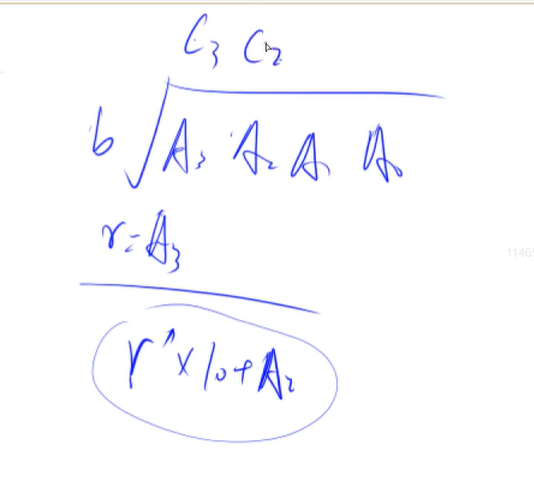 C₃ C₂
b √ A₃ A₂ A₁ A₀
r = A₃
r' × 10 + A₂